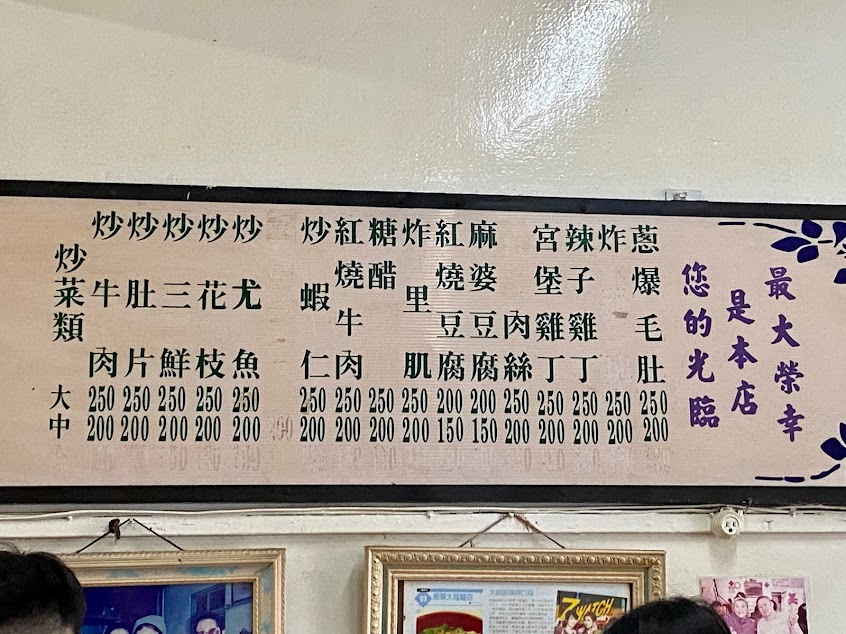 炒菜類 大 中
炒牛肉 250 200
炒肚片 250 200
炒三鮮 250 200
炒花枝 250 200
炒尤魚 250 200
炒蝦仁 250 200
紅燒牛肉 250 200
糖醋 250 200
炸里肌 250 200
紅燒豆腐 200 150
麻婆豆腐 200 150
肉絲 250 200
宮堡雞丁 250 200
辣子雞丁 250 200
炸 250 200
蔥爆毛肚 250 200
您的光臨
是本店
最大榮幸
7 WATCH